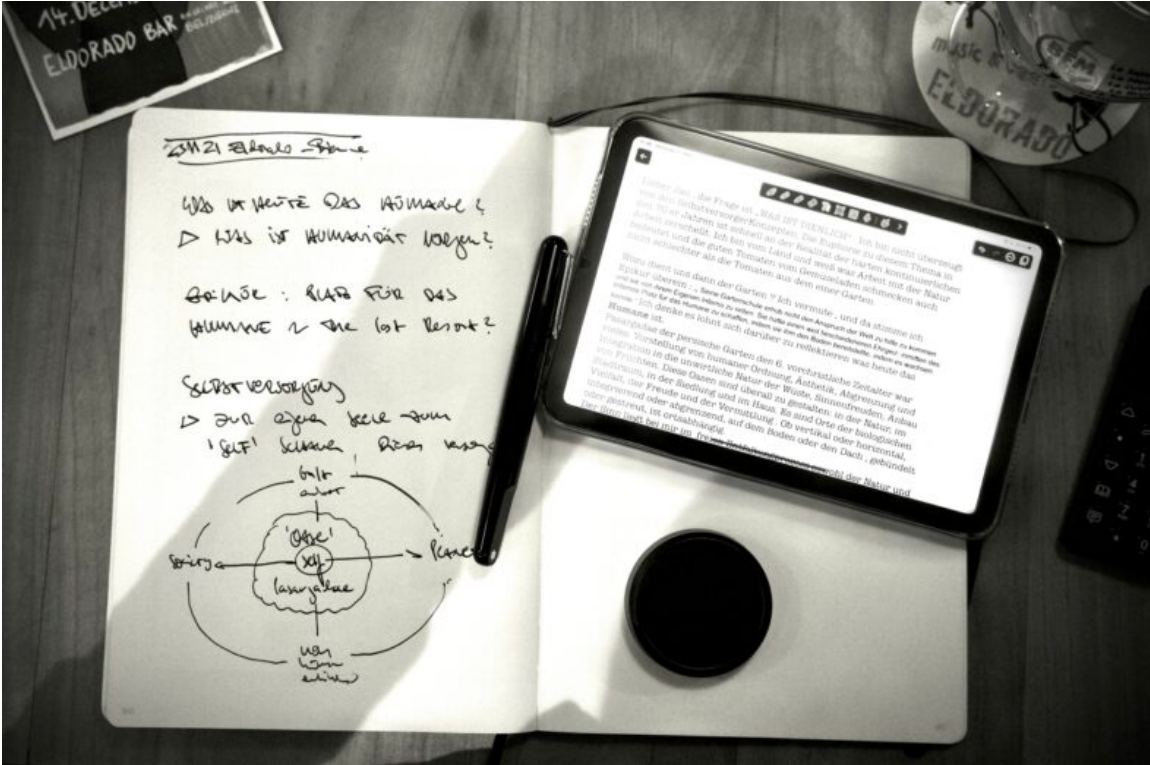 14. DECEM
ELDORADO BAR
music &
BFM
ELDORADO
WAS IST HEUTE DAS HUMANE?
▷ WAS IST HUMANITÄT MORGEN?
EPIKUR : PLATZ FÜR DAS
HUMANE the last Resort?
SELBSTVERSORGUNG
▷ ZUR eigenen Seele zum
'SELF'
'OASE'
self
Pasargadae
PLANET
die Frage ist „WAR IST DIENLICH". Ich bin nicht überzeugt
von den SelbstversorgerKonzepten. Die Euphorie zu diesem Thema in
den 70 er Jahren ist schnell an der Realität der harten kontinuierlichen
Arbeit zerschellt. Ich bin vom Land und weiß was Arbeit mit der Natur
bedeutet und die guten Tomaten vom Gemüseladen schmecken auch
nicht schlechter als die Tomaten aus dem einer Garten.
Wozu dient uns dann der Garten ? Ich vermute , und da stimme ich
Epikur überein : „ Seine Gartenschule erhob nicht den Anspruch der Welt zu hilfe zu kommen
und sie von ihrem Eigenen Inferno zu retten. Sie hatte einen weit bescheideneren Ehrgeiz :inmitten des
Infernos Platz für das Humane zu schaffen, indem sie ihm den Boden bereitstellte, indem es wachsen
konnte." Ich denke es lohnt sich darüber zu reflektieren was heute das
Humane ist.
Pasargadae der persische Garten den 6. vorchristliche Zeitalter war
vieles: Vorstellung von humaner Ordnung, Ästhetik, Abgrenzung und
Integration in die unwirtliche Natur der Wüste, Sinnenfreuden, Anbau
von Früchten. Diese Oasen sind überall zu gestalten: in der Natur, im
Stadtraum, in der Siedlung und im Haus. Es sind Orte der biologischen
Vielfalt, der Freude und der Vermittlung . Ob vertikal oder horizontal,
integrierend oder abgrenzend, auf dem Boden oder den Dach , gebündelt
oder gestreut, ist ortsabhängig.
Der Sinn liegt bei mir im
sowohl der Natur und